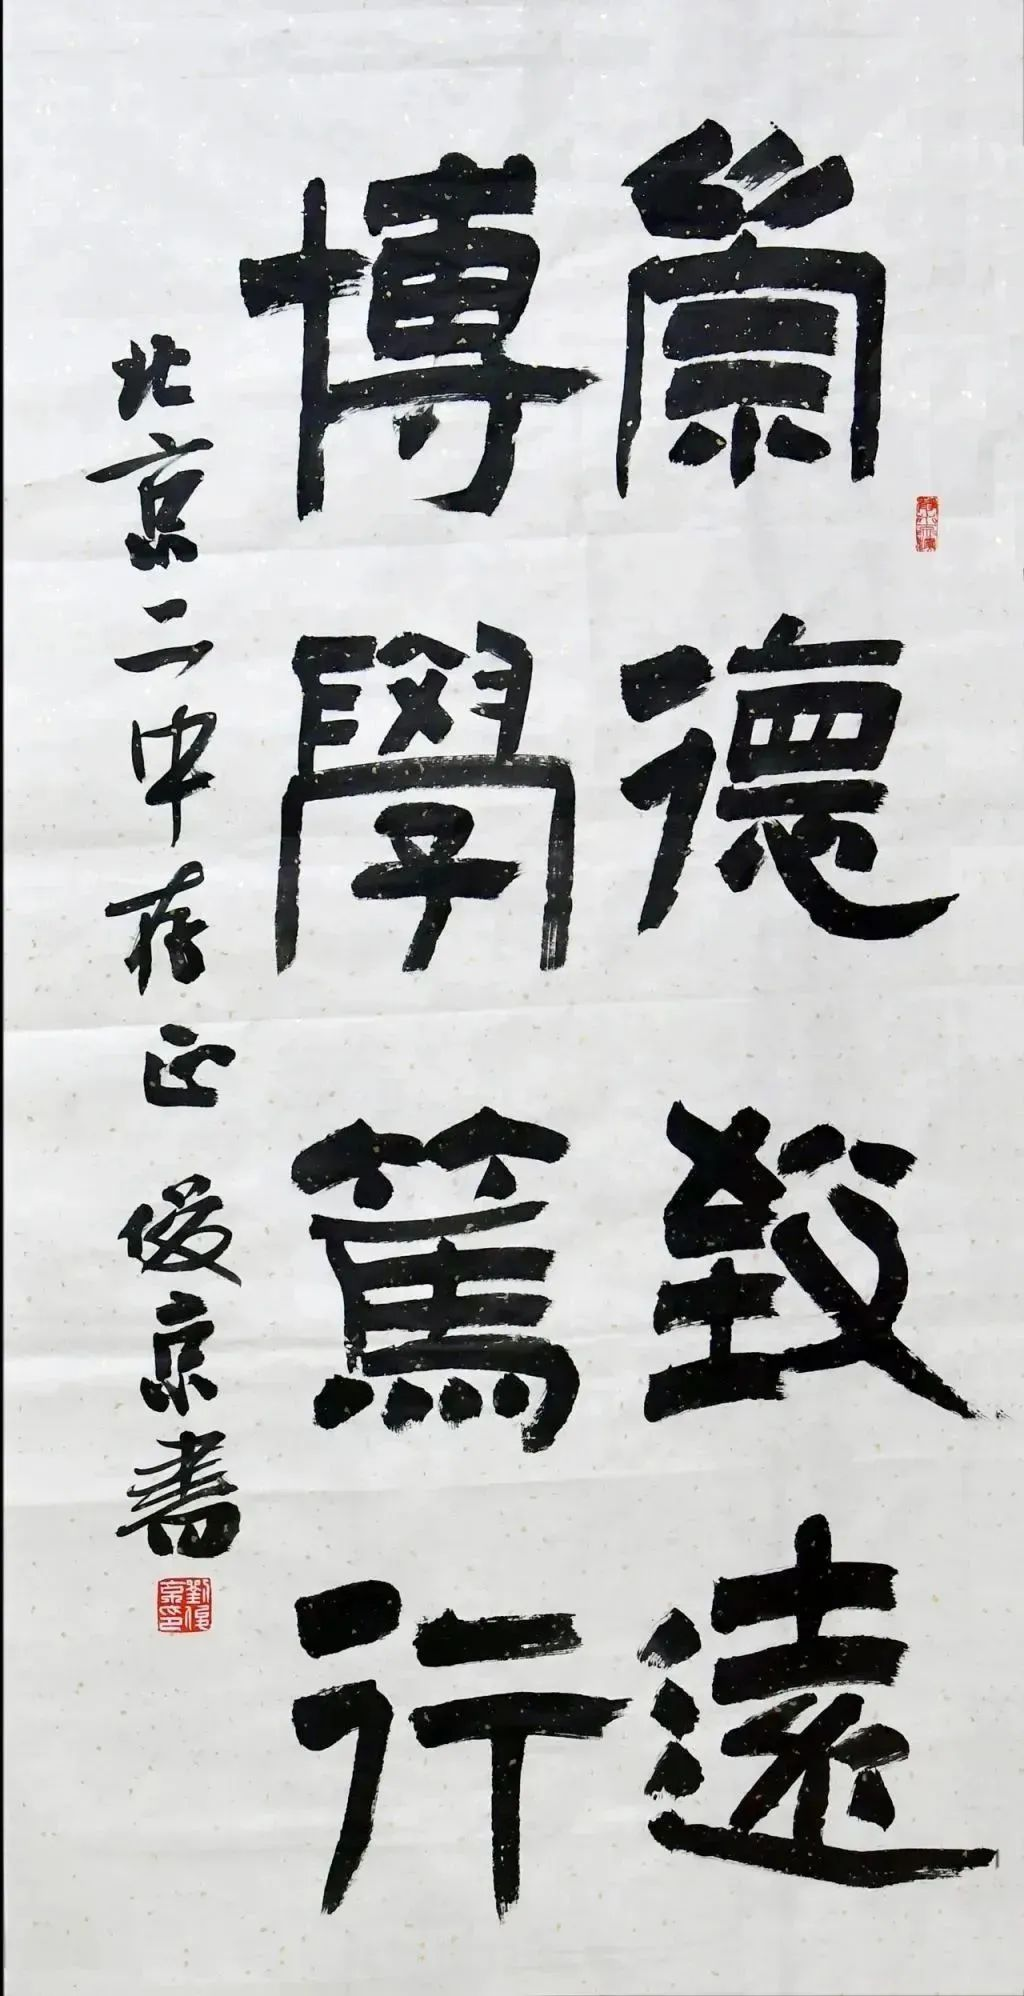 崇德致遠
博學篤行
北京二中存正 俊京書
劉俊京印